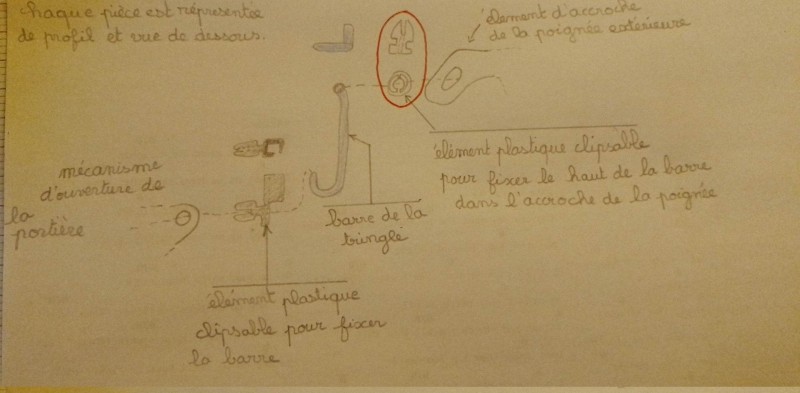 chaque pièce est représentée
de profil et vue de dessous.
élement d'accroche
de la poignée extérieure
élément plastique clipsable
pour fixer le haut de la barre
dans l'accroche de la poignée
mécanisme
d'ouverture de
la
portière
barre de la
tringle
élément plastique
clipsable pour fixer
la barre